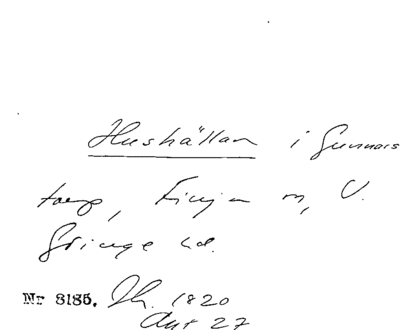 Hushållan i Gunnars
torp, Finja sn, V.
Göinge hd.
Nr 8185. Th. 1820
Ant 27